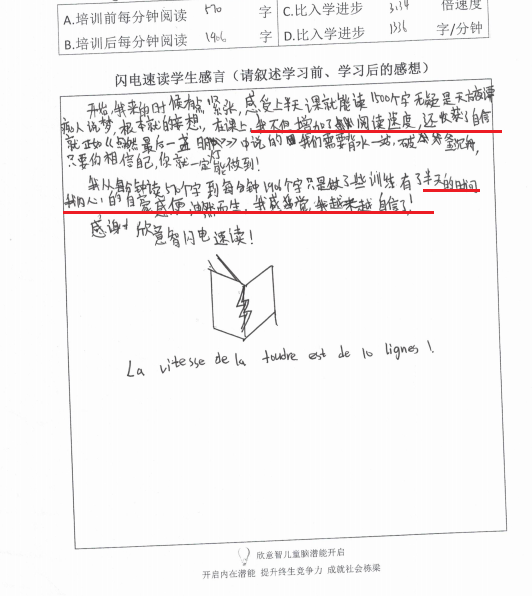 A.培训前每分钟阅读 570 字 C.比入学进步 3.34 倍速度
B.培训后每分钟阅读 1906 字 D.比入学进步 1336 字/分钟
闪电速读学生感言（请叙述学习前、学习后的感想）
开始,我来的时候有点紧张,感觉上半天课就能读1500个字无疑是天方夜谭
痴人说梦,根本就在妄想,在课上,我不但增加了阅读速度,还收获了自信
就正如《最后一》中说的我们需要背水一战,破釜沉舟,
只要你相信自己,你就一定能做到!
我从每分钟读570个字到每分钟1906个字只是做了些训练有了半天的时间
我内心的自豪感便油然而生,我感觉,我越来越自信了!
感谢 欣意智闪电速读!
La vitesse de la foudre est de 10 lignes!
欣意智儿童脑潜能开启
开启内在潜能 提升终生竞争力 成就社会栋梁